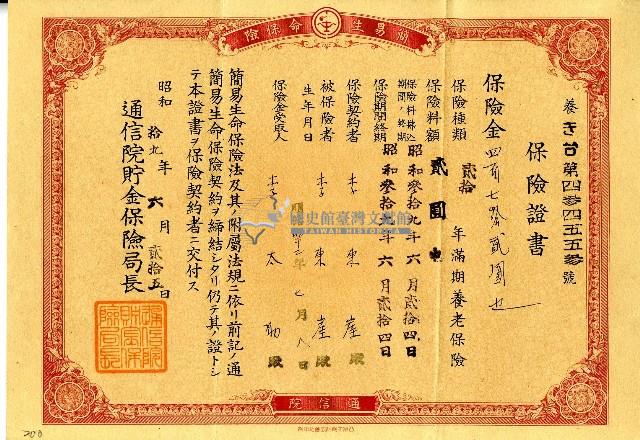 簡易生命保險
養き台第四參四五五參號
保險證書
保險金四百七拾貳圓也
保險種類 貳拾年滿期養老保險
保險料額 貳圓也
保險料拂込期間ノ終期 昭和參拾九年六月貳拾四日
保險期間終期 昭和參拾九年六月貳拾四日
保險契約者 李東 殿
被保險者 李東 殿
生年月日 年七月八日
保險金受取人 李太 殿
簡易生命保險法及其ノ附屬法規ニ依リ前記ノ通
簡易生命保險契約ヲ締結シタリ仍テ其ノ證トシ
テ本證書ヲ保險契約者ニ交付ス
昭和拾九年六月貳拾五日
通信院貯金保險局長
通信院貯金保險局長
通信院
國史館臺灣文獻館
TAIWAN HISTORICA
200